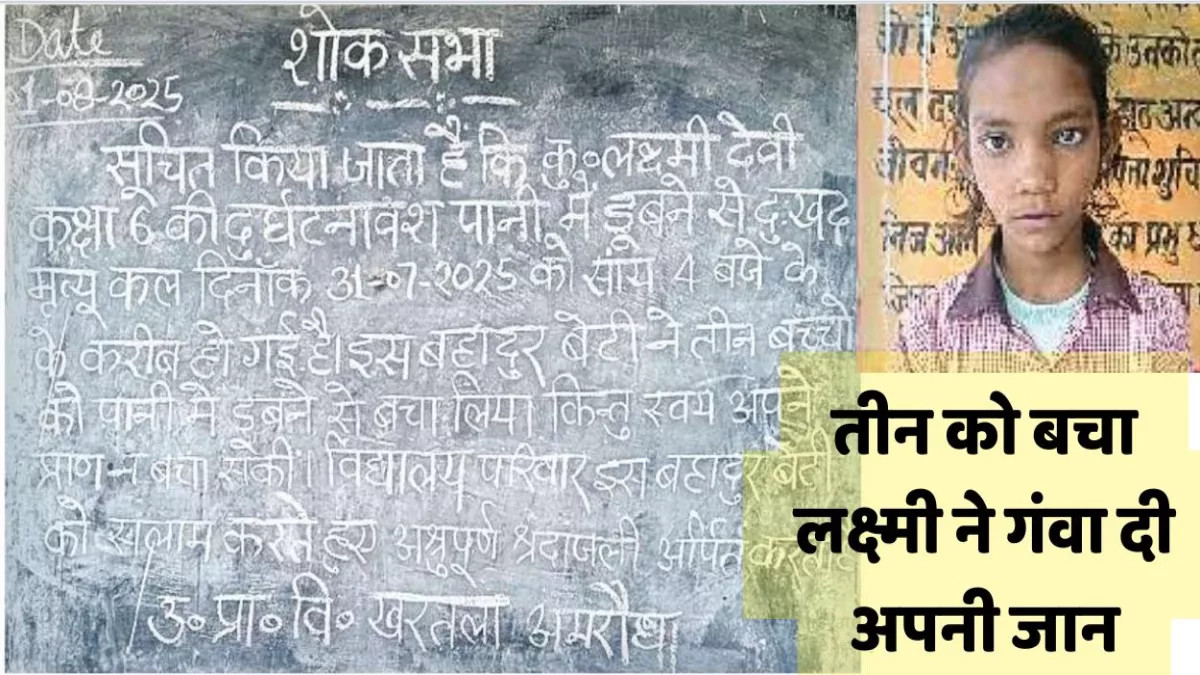 Date
01-08-2025
शोक सभा
सूचित किया जाता है कि कु॰ लक्ष्मी देवी
कक्षा 6 की दुर्घटनावश पानी में डूबने से दुःखद
मृत्यू कल दिनाँक 31-07-2025 को सांय 4 बजे के
के करीब हो गई है। इस बहादुर बेटी ने तीन बच्चो
को पानी में डूबने से बचा लिया किन्तु स्वयं अपने
प्राण न बचा सकी। विद्यालय परिवार इस बहादुर बेटी
को सलाम करते हुए अश्रुपूर्ण श्रदांजली अर्पित करता
उ॰ प्रा॰ वि॰ खरतला अमरौधा
के उनको
चल
झूठ
जीवन
शुचि
निज
का प्रभु
तीन को बचा
लक्ष्मी ने गंवा दी
अपनी जान